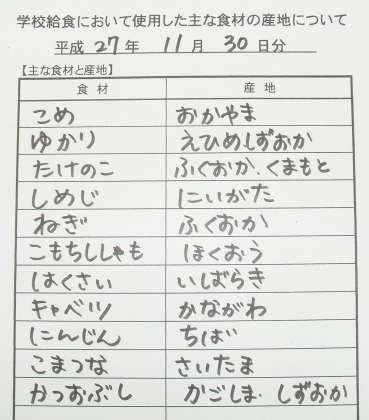 学校給食において使用した主な食材の産地について
平成 27 年 11 月 30 日分
【主な食材と産地】
食 材 産 地
こめ おかやま
ゆかり えひめしずおか
たけのこ ふくおか.くまもと
しめじ にいがた
ねぎ ふくおか
こもちししゃも ほくおう
はくさい いばらき
キャベツ かながわ
にんじん ちば
こまつな さいたま
かつおぶし かごしま.しずおか